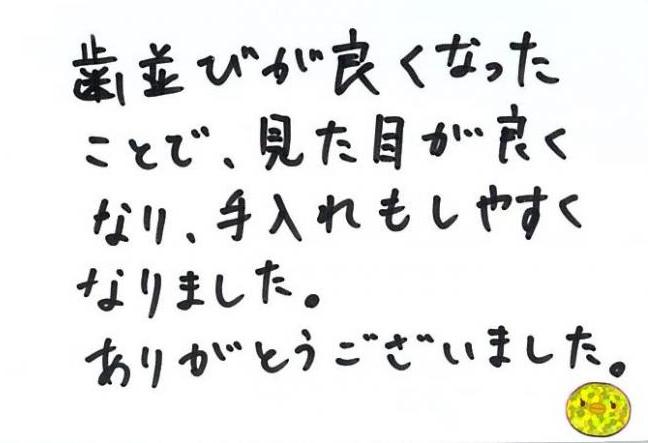 歯並びが良くなった
ことで、見た目が良く
なり、手入れもしやすく
なりました。
ありがとうございました。